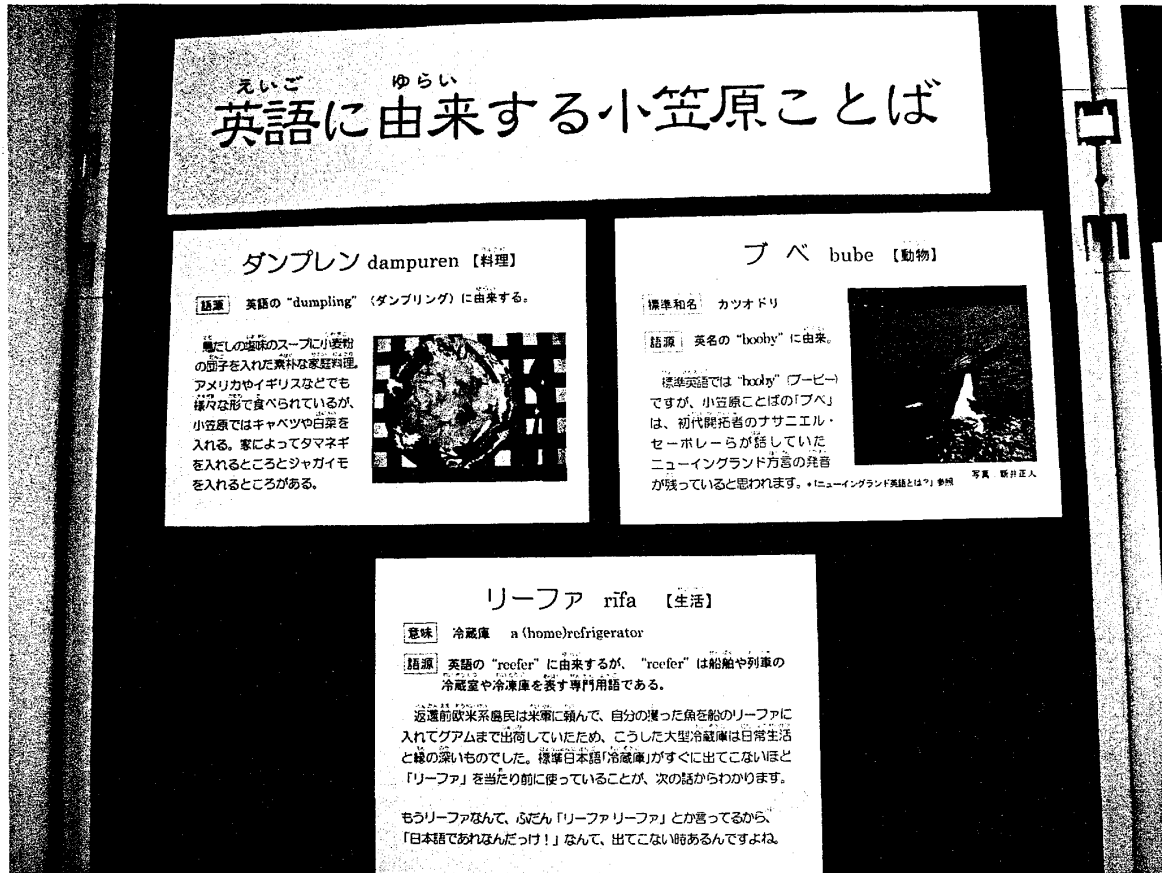 英語に由来する小笠原ことば
ダンプレン dampuren 【料理】
語源 英語の “dumpling” （ダンプリング）に由来する。
鶏だしの塩味のスープに小麦粉
の団子を入れた素朴な家庭料理。
アメリカやイギリスなどでも
様々な形で食べられているが、
小笠原ではキャベツや白菜を
入れる。家によってタマネギ
を入れるところとジャガイモ
を入れるところがある。
ブベ bube 【動物】
標準和名 カツオドリ
語源 英名の “booby” に由来。
標準英語では “booby” (ブービー)
ですが、小笠原ことばの「ブベ」
は、初代開拓者のナサニエル・
セーボレーらが話していた
ニューイングランド方言の発音
が残っていると思われます。*「ニューイングランド英語とは？」参照
写真 新井正人
リーファ rīfa 【生活】
意味 冷蔵庫 a (home)refrigerator
語源 英語の “reefer” に由来するが、 “reefer” は船舶や列車の
冷蔵室や冷凍庫を表す専門用語である。
返還前欧米系島民は米軍に頼んで、自分の獲った魚を船のリーファに
入れてグアムまで出荷していたため、こうした大型冷蔵庫は日常生活
と縁の深いものでした。標準日本語「冷蔵庫」がすぐに出てこないほど
「リーファ」を当たり前に使っていることが、次の話からわかります。
もうリーファなんて、ふだん「リーファ リーファ」とか言ってるから、
「日本語であれなんだっけ！」なんて、出てこない時あるんですよね。